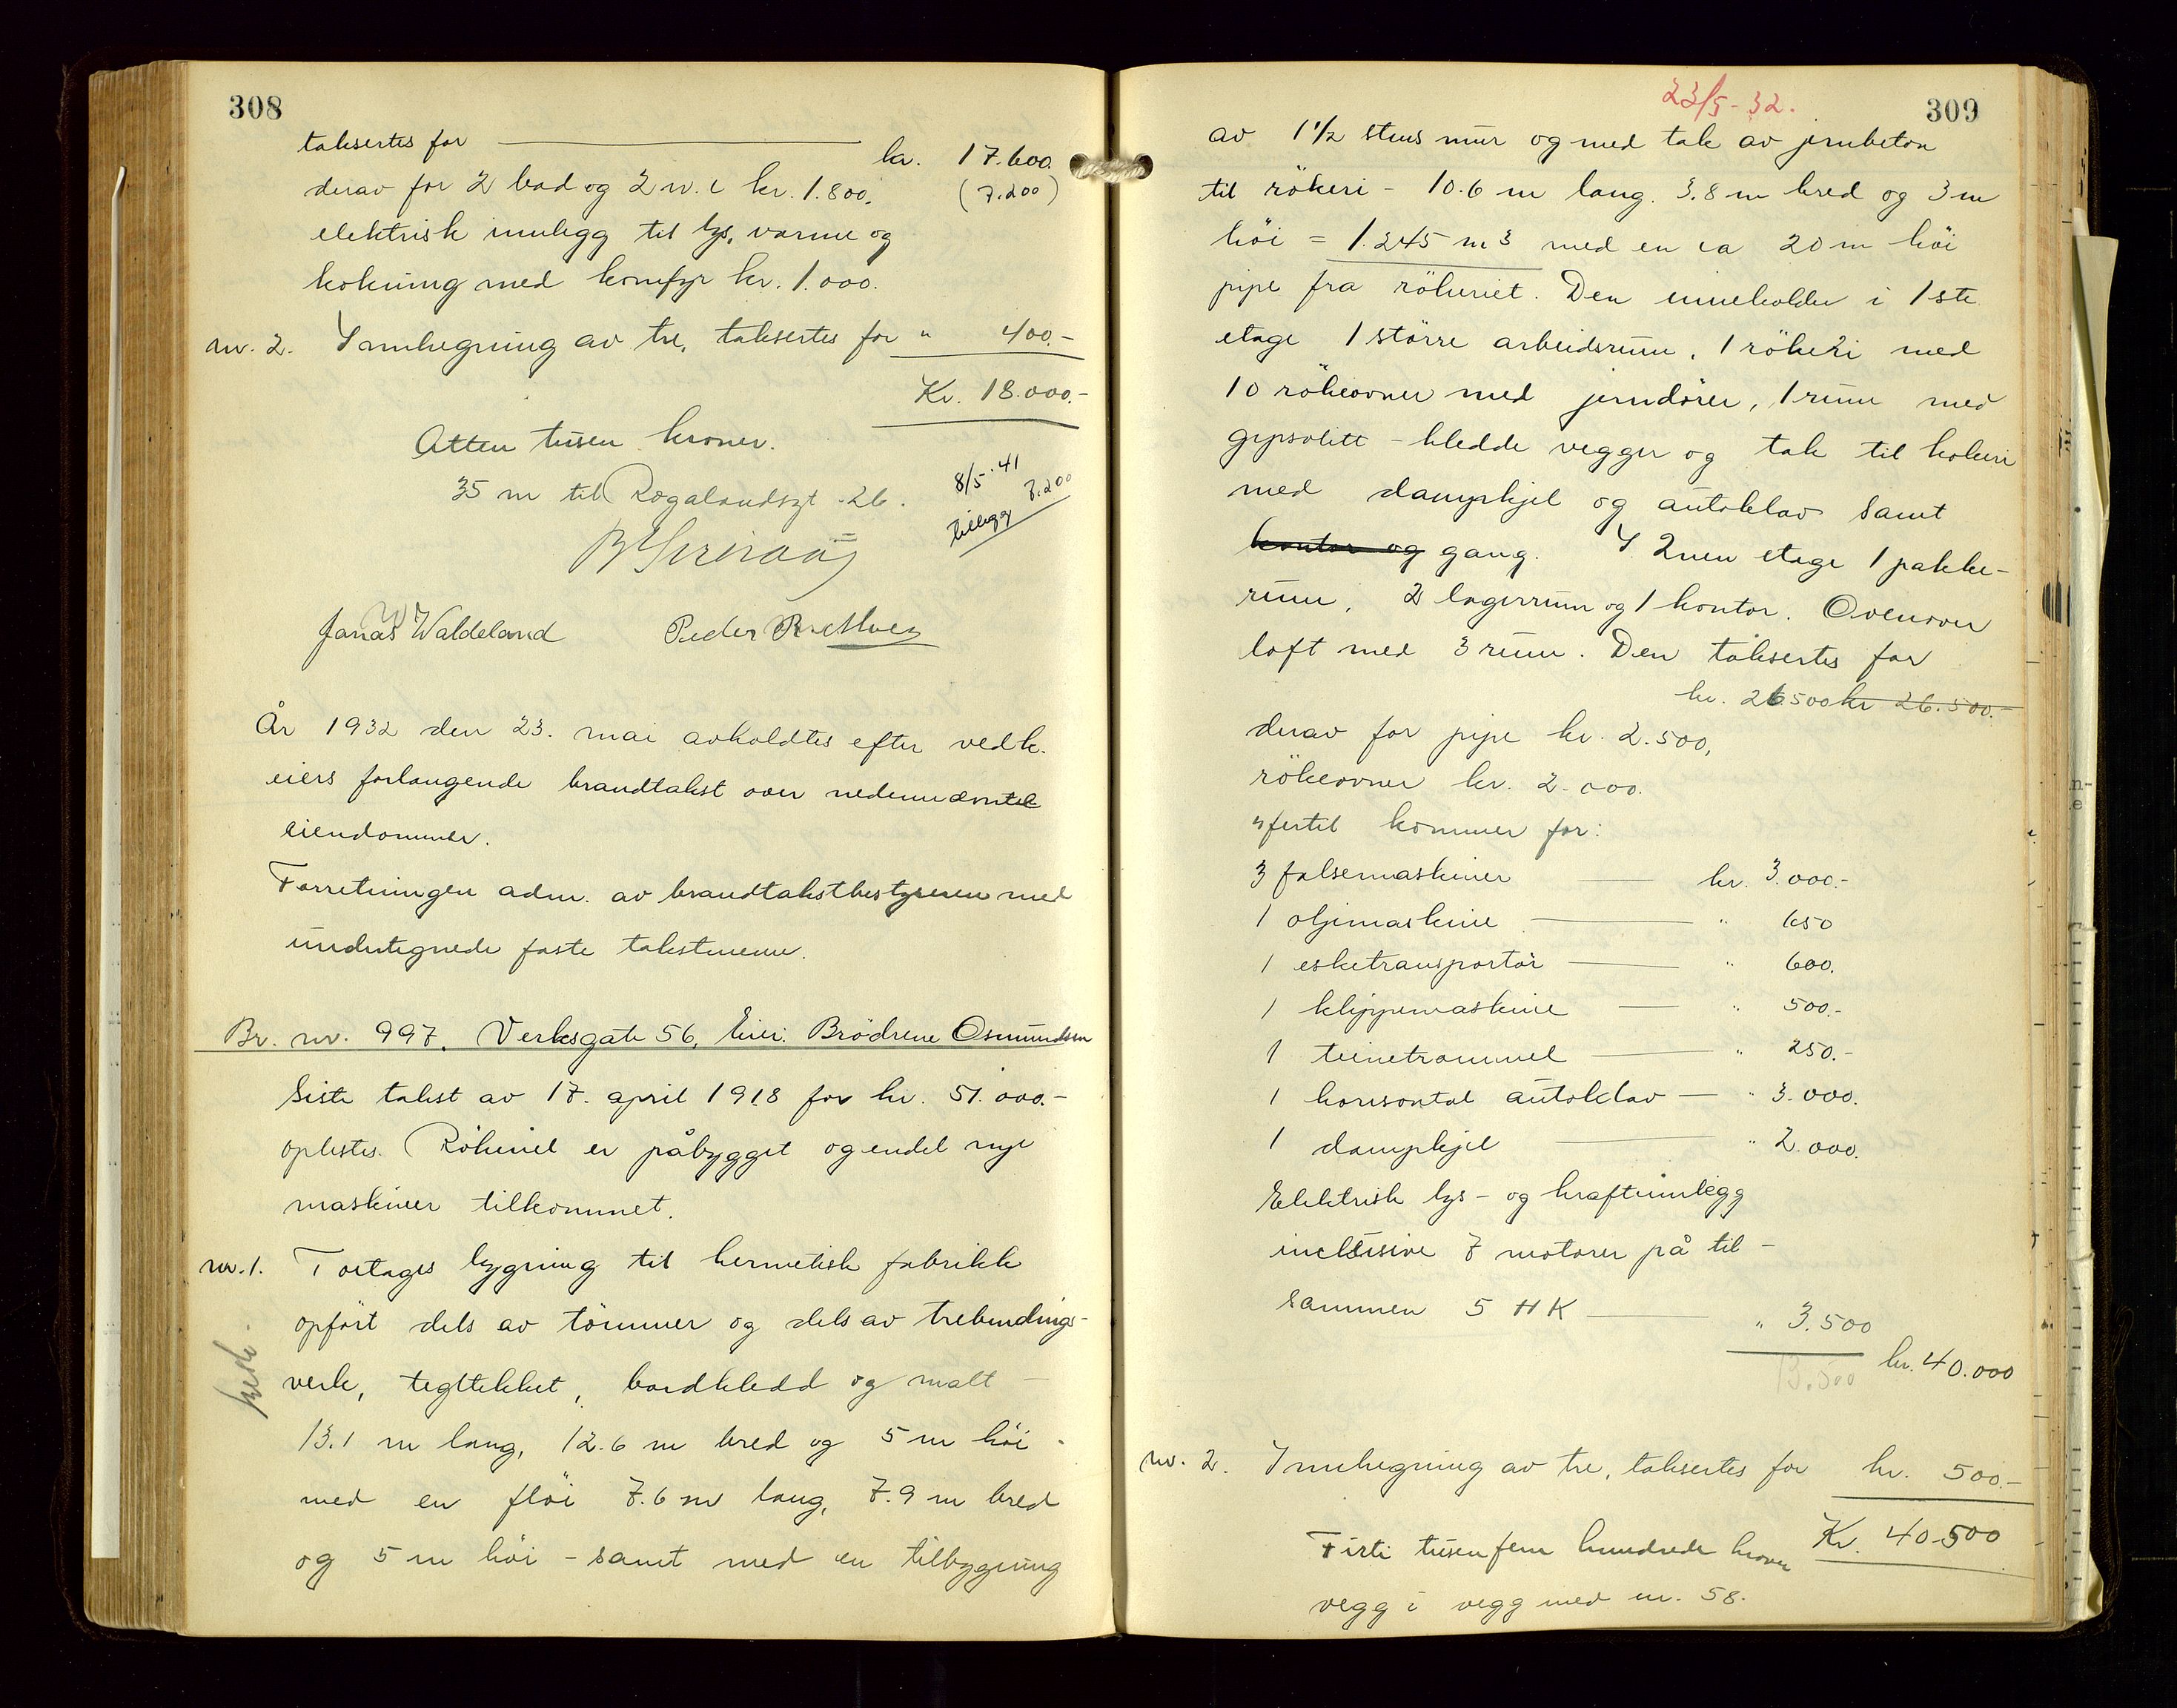 308
taksertes for ——— kr. 17.600.
derav for 2 bad og 2 w.c kr. 1.800. (7.200)
elektrisk innlegg til lys, varme og
kokning med komfyr kr. 1.000.
nr. 2. Innhegning av tre, taksertes for " 400.-
Kr. 18.000.-
Atten tusen kroner.
35 m til Rogalandsgt. 26.
8/5-41
tillegg 7.200
Jonas Waldeland Peder
År 1932 den 23. mai avholdtes efter vedk.
eiers forlangende brandtakst over nedennevnte
eiendommer.
Forretningen adm. av brandtakstbestyreren med
undertegnede faste takstmenn.
Br. nr. 997. Verksgate 56, Eier: Brödrene Osmundsen
Siste takst av 17. april 1918 for kr. 51.000.-
oplestes. Rökeriet er påbygget og endel nye
maskiner tilkommet.
nr. 1. Toetages bygning til hermetisk fabrikk
opfört dels av tömmer og dels av trebindings-
verk, tegltekket, bordkledd og malt -
13.1 m lang, 12.6 m bred og 5 m höi -
med en flöi 7.6 m lang, 7.9 m bred
og 5 m höi - samt med en tilbygning
23/5-32.
309
av 1 1/2 stens mur og med tak av jernbeton
til rökeri - 10.6 m lang. 3.8 m bred og 3 m
höi = 1.245 m3 med en ca 20 m höi
pipe fra rökeriet. Den inneholder i 1ste
etage 1 större arbeidsrum, 1 rökeri med
10 rökeovner med jerndörer, 1 rum med
gipsolitt-kledde vegger og tak til kokeri
med dampkjel og autoklav samt
kontor og gang. I 2nen etage 1 pakke-
rum, 2 lagerrum og 1 kontor. Ovenover
loft med 3 rum. Den taksertes for
kr. 26500 kr 26.500.-
derav for pipe kr. 2.500,
rökeovner kr. 2.000.
fertil kommer for:
3 falsemaskiner —— kr. 3.000.-
1 oljemaskine —— " 650
1 esketransportör —— " 600.
1 klippemaskine —— " 500.-
1 teinetrommel —— " 250.-
1 horisontal autoklav — " 3.000.
1 dampkjel —— " 2.000.
Elektrisk lys- og kraftinnlegg
inclusive 7 motorer på til-
sammen 5 HK —— " 3.500
13.500 kr. 40.000
nr. 2. Innhegning av tre, taksertes for kr. 500.-
Kr. 40.500
Firti tusen fem hundrede kroner
vegg i vegg med nr. 58.